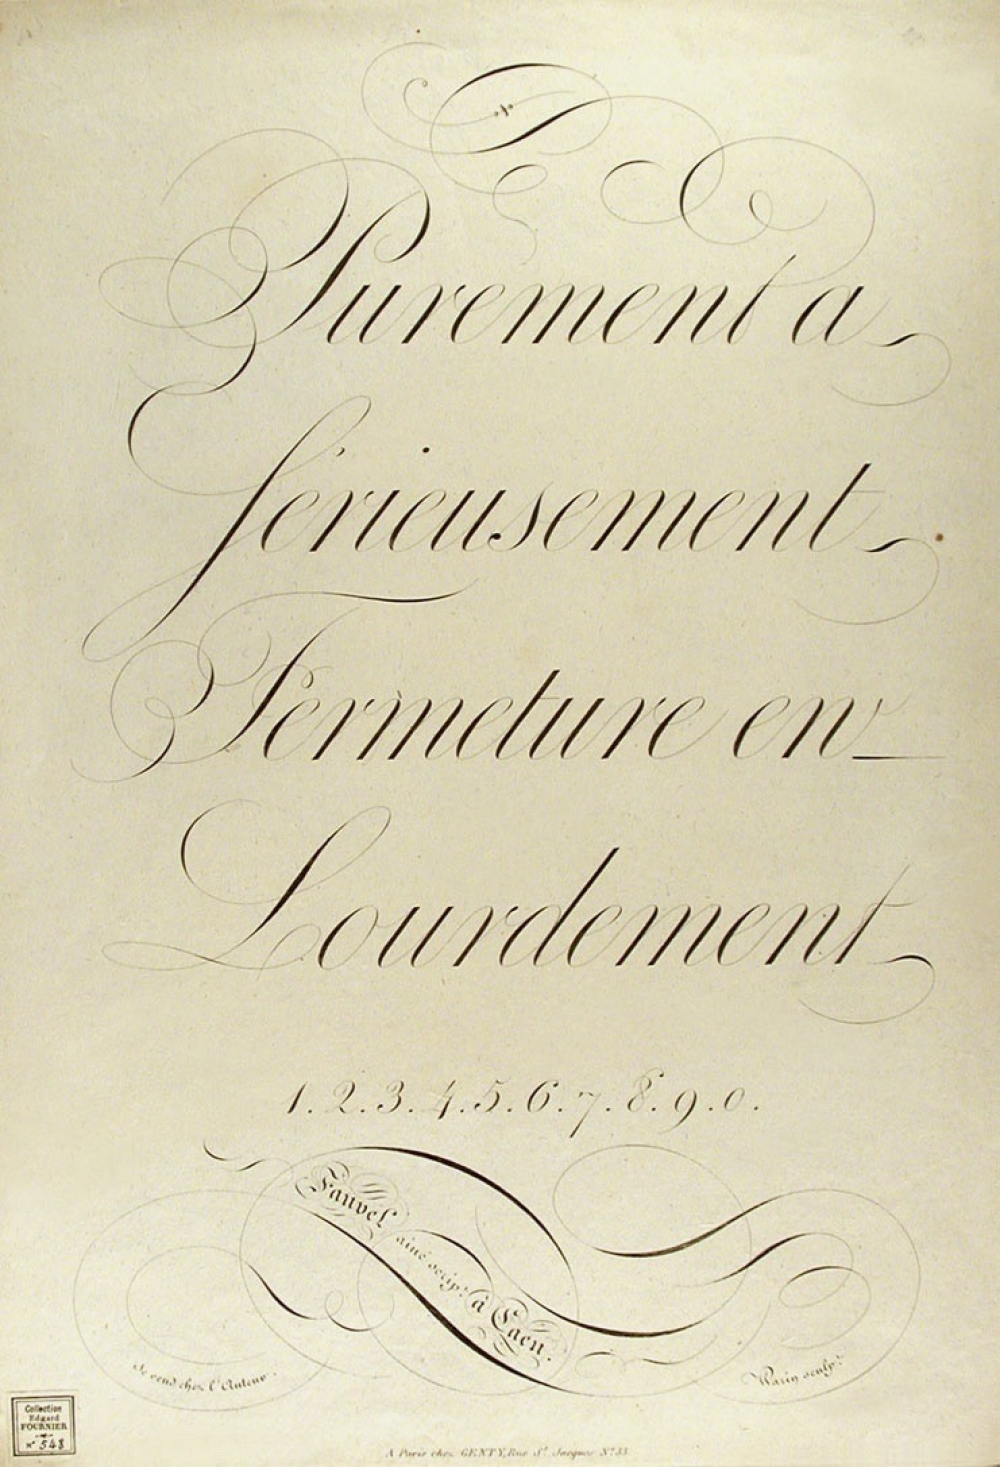 4.
Purement a
sérieusement
Fermeture en
Lourdement
1.2.3.4.5.6.7.8.9.0.
Fauvel
ainé scrip.t à Caen.
Se vend chez l'Auteur.
Warin sculp.t
Collection
Edgard
FOURNIER
n° 548
A Paris chez GENTY, Rue S.t Jacques N.° 33.